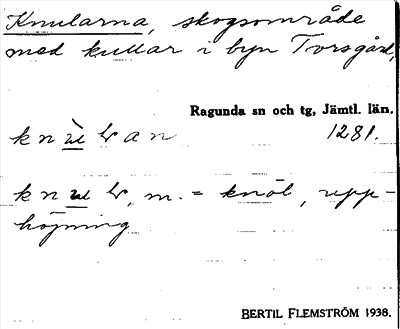 Knularna, skogsområde
med kullar i byn Torsgård,
Ragunda sn och tg, Jämtl. län.
1281.
m. = knöl, upp-
höjning
BERTIL FLEMSTRÖM 1938.